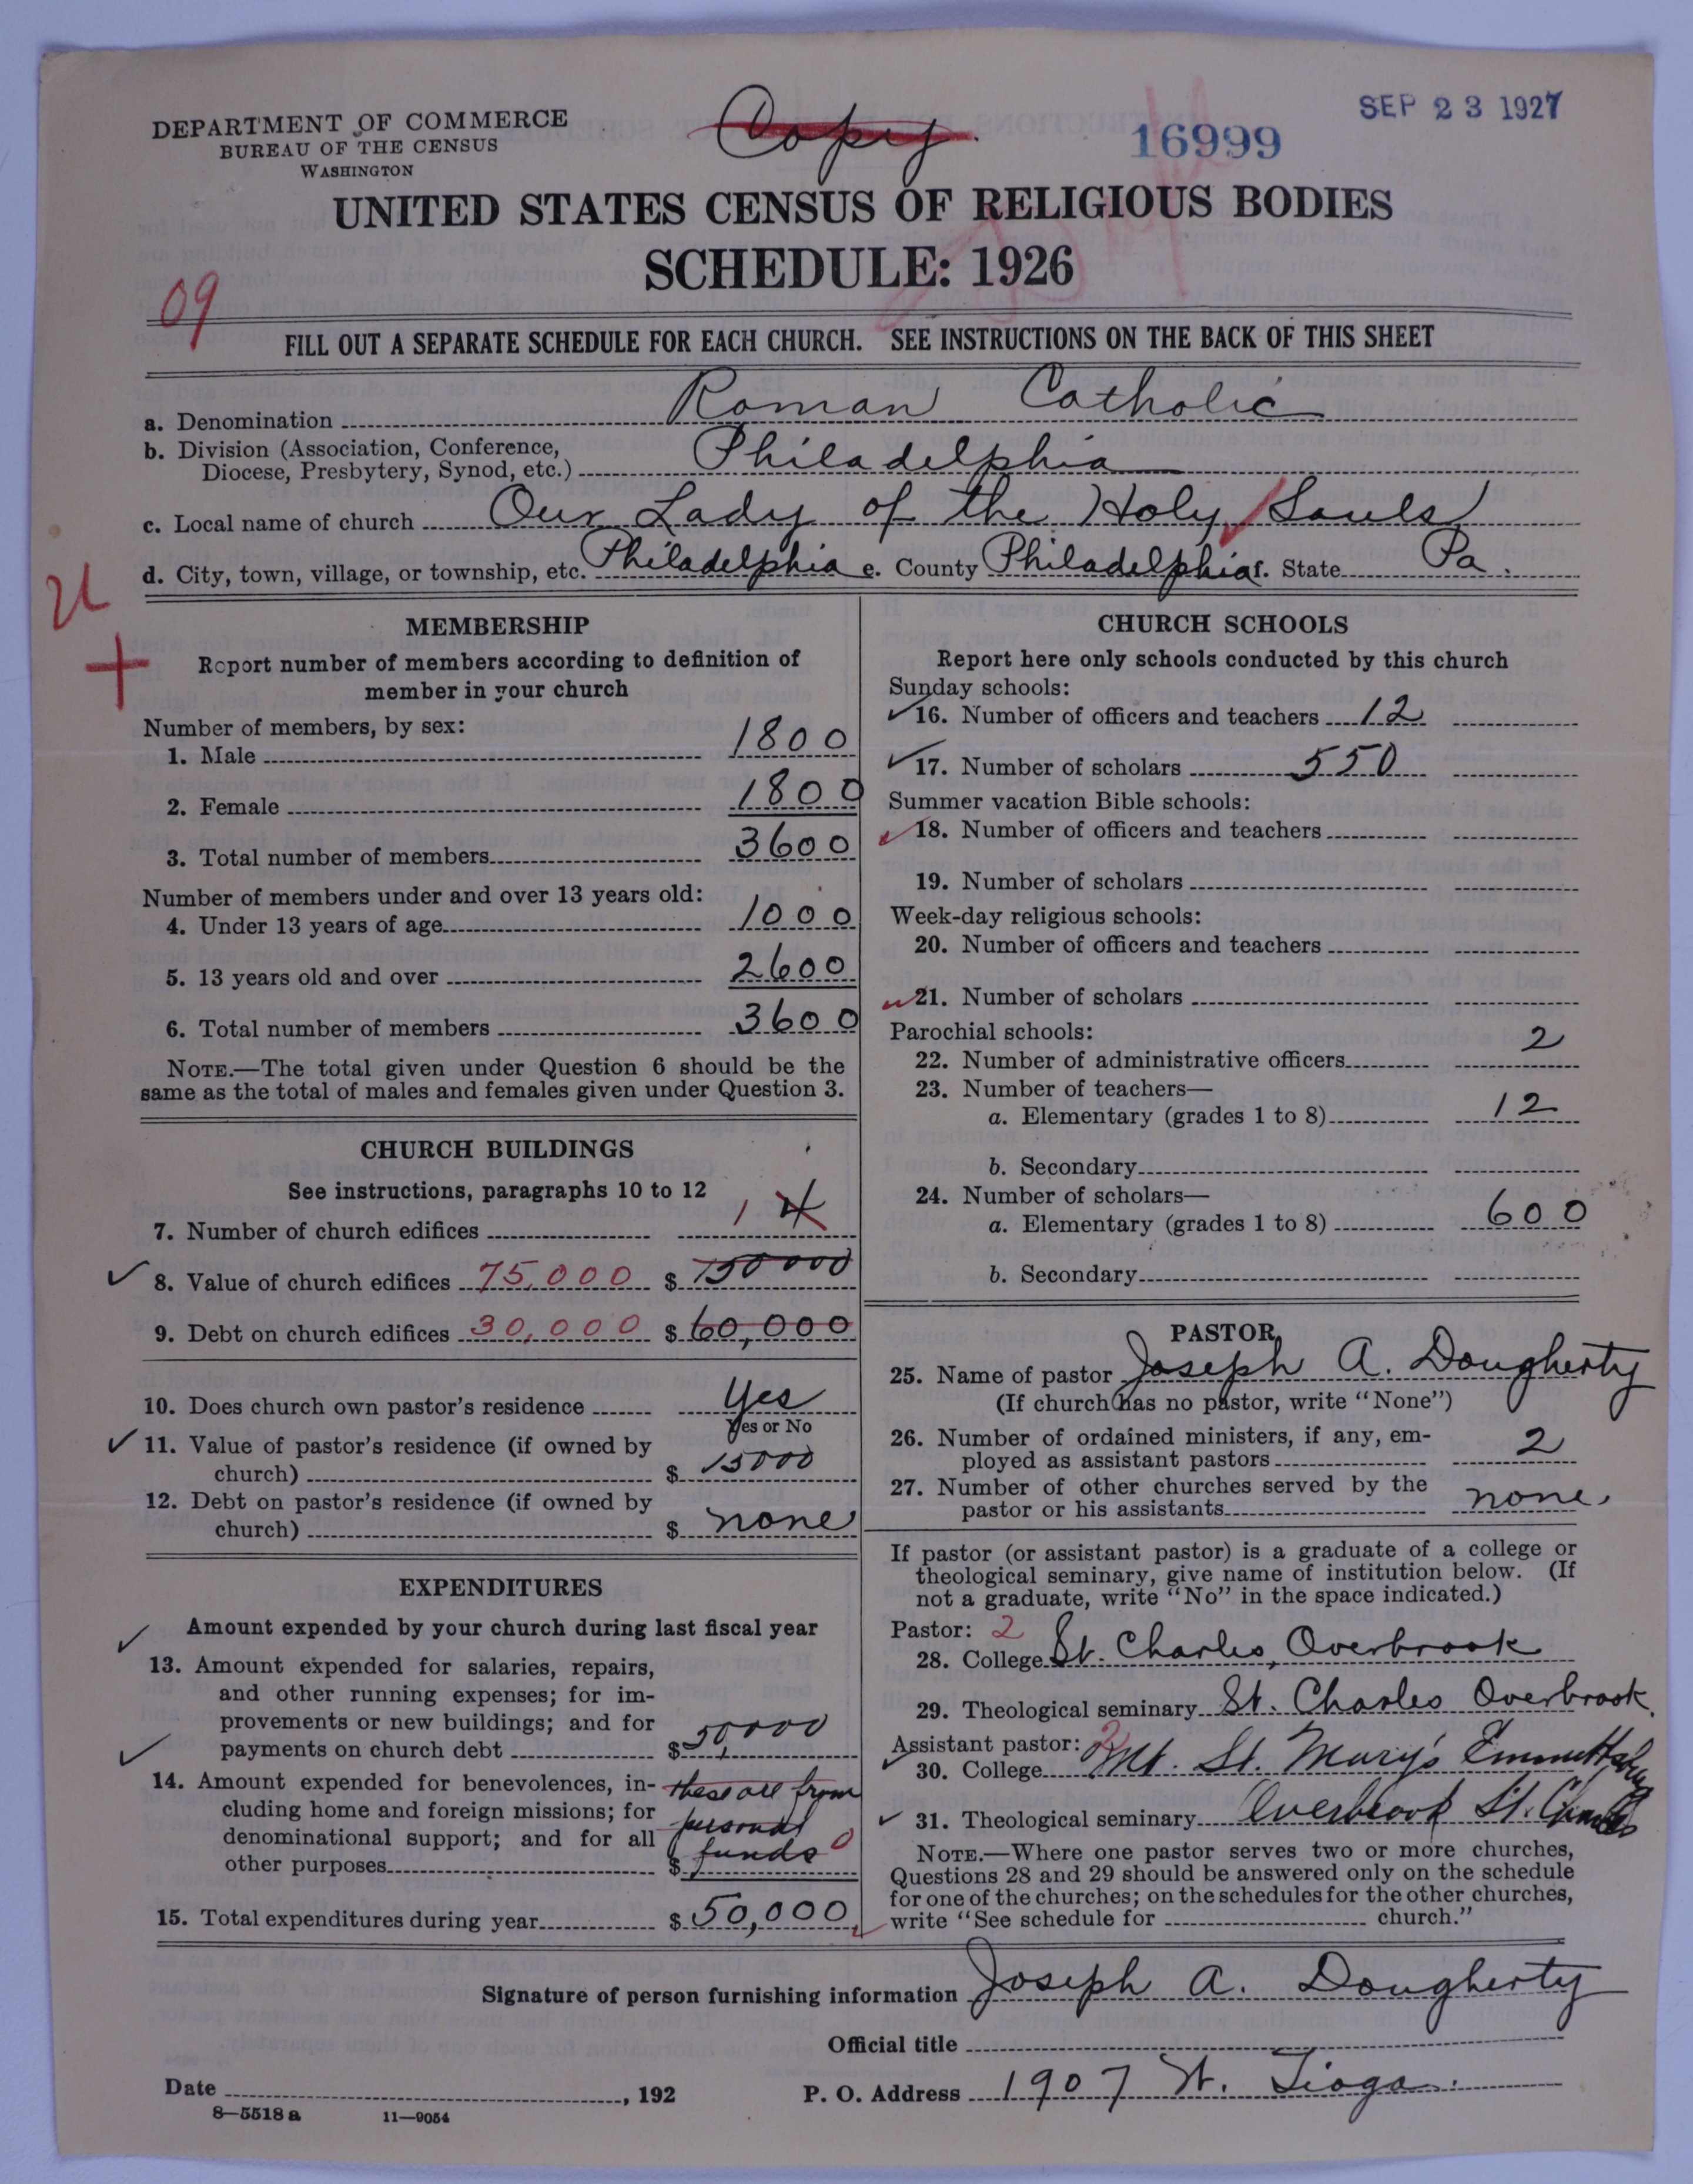 DEPARTMENT OF COMMERCE
BUREAU OF THE CENSUS
WASHINGTON
Copy.
16999
SEP 23 1927
UNITED STATES CENSUS OF RELIGIOUS BODIES
SCHEDULE: 1926
09
FILL OUT A SEPARATE SCHEDULE FOR EACH CHURCH. SEE INSTRUCTIONS ON THE BACK OF THIS SHEET
a. Denomination Roman Catholic
b. Division (Association, Conference,
Diocese, Presbytery, Synod, etc.) Philadelphia
c. Local name of church Our Lady of the Holy Souls
d. City, town, village, or township, etc. Philadelphia e. County Philadelphia f. State Pa.
MEMBERSHIP
Report number of members according to definition of
member in your church
Number of members, by sex:
1. Male 1800
2. Female 1800
3. Total number of members 3600
Number of members under and over 13 years old:
4. Under 13 years of age 1000
5. 13 years old and over 2600
6. Total number of members 3600
NOTE.—The total given under Question 6 should be the
same as the total of males and females given under Question 3.
CHURCH BUILDINGS
See instructions, paragraphs 10 to 12
7. Number of church edifices 1
8. Value of church edifices 75,000 $ 150000
9. Debt on church edifices 30,000 $ 60,000
10. Does church own pastor's residence Yes
Yes or No
11. Value of pastor's residence (if owned by
church) $ 15000
12. Debt on pastor's residence (if owned by
church) $ none
EXPENDITURES
Amount expended by your church during last fiscal year
13. Amount expended for salaries, repairs,
and other running expenses; for im-
provements or new buildings; and for
payments on church debt $ 50,000
14. Amount expended for benevolences, in- these are from
cluding home and foreign missions; for personal
denominational support; and for all funds 0
other purposes $
15. Total expenditures during year $ 50,000
CHURCH SCHOOLS
Report here only schools conducted by this church
Sunday schools:
16. Number of officers and teachers 12
17. Number of scholars 550
Summer vacation Bible schools:
18. Number of officers and teachers
19. Number of scholars
Week-day religious schools:
20. Number of officers and teachers
21. Number of scholars
Parochial schools:
22. Number of administrative officers 2
23. Number of teachers—
a. Elementary (grades 1 to 8) 12
b. Secondary
24. Number of scholars—
a. Elementary (grades 1 to 8) 600
b. Secondary
PASTOR
25. Name of pastor Joseph A. Dougherty
(If church has no pastor, write "None")
26. Number of ordained ministers, if any, em-
ployed as assistant pastors 2
27. Number of other churches served by the
pastor or his assistants none.
If pastor (or assistant pastor) is a graduate of a college or
theological seminary, give name of institution below. (If
not a graduate, write "No" in the space indicated.)
Pastor: 2
28. College St. Charles, Overbrook
29. Theological seminary St. Charles Overbrook.
Assistant pastor: 2
30. College Mt. St. Mary's Emmittsburg
31. Theological seminary Overbrook St. Charles
NOTE.—Where one pastor serves two or more churches,
Questions 28 and 29 should be answered only on the schedule
for one of the churches; on the schedules for the other churches,
write "See schedule for church."
Signature of person furnishing information Joseph A. Dougherty
Official title
Date , 192
P. O. Address 1907 W. Tioga.
8—5518a 11—9054